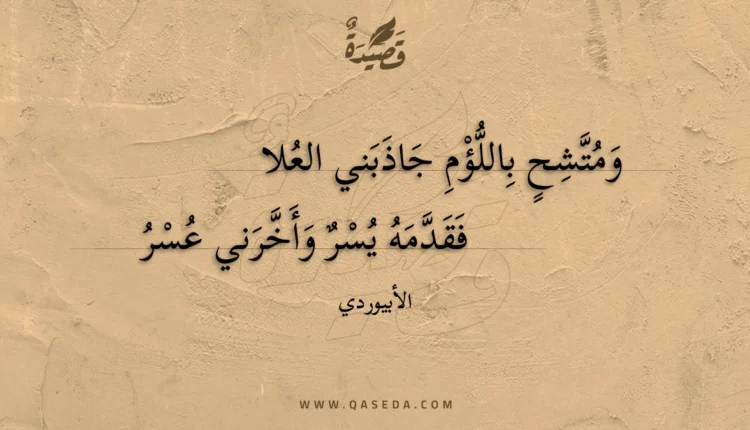 قَصِيْدَةٌ
وَمُتَّشِحٍ بِاللُّؤْمِ جَاذَبَني العُلا
فَقَدَّمَهُ يُسْرٌ وَأَخَّرَني عُسْرُ
الأبيوردي
WWW.QASEDA.COM